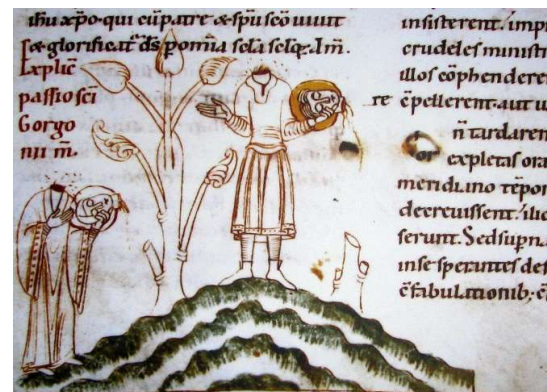 ihu xpo·qui cu patre & spu sco uiuit
& glorificat ds p omia scla sclo. Am.
Explic
passio sci
Gorgo
nii m.
insisterent.
crudeles ministr
illos cophendere
re
e pellerent·aut u
n tardaren
expletas ora
meridiano tepor
decreuissent.
serunt. Sed supn
in se sperantes des
c fabulationib;